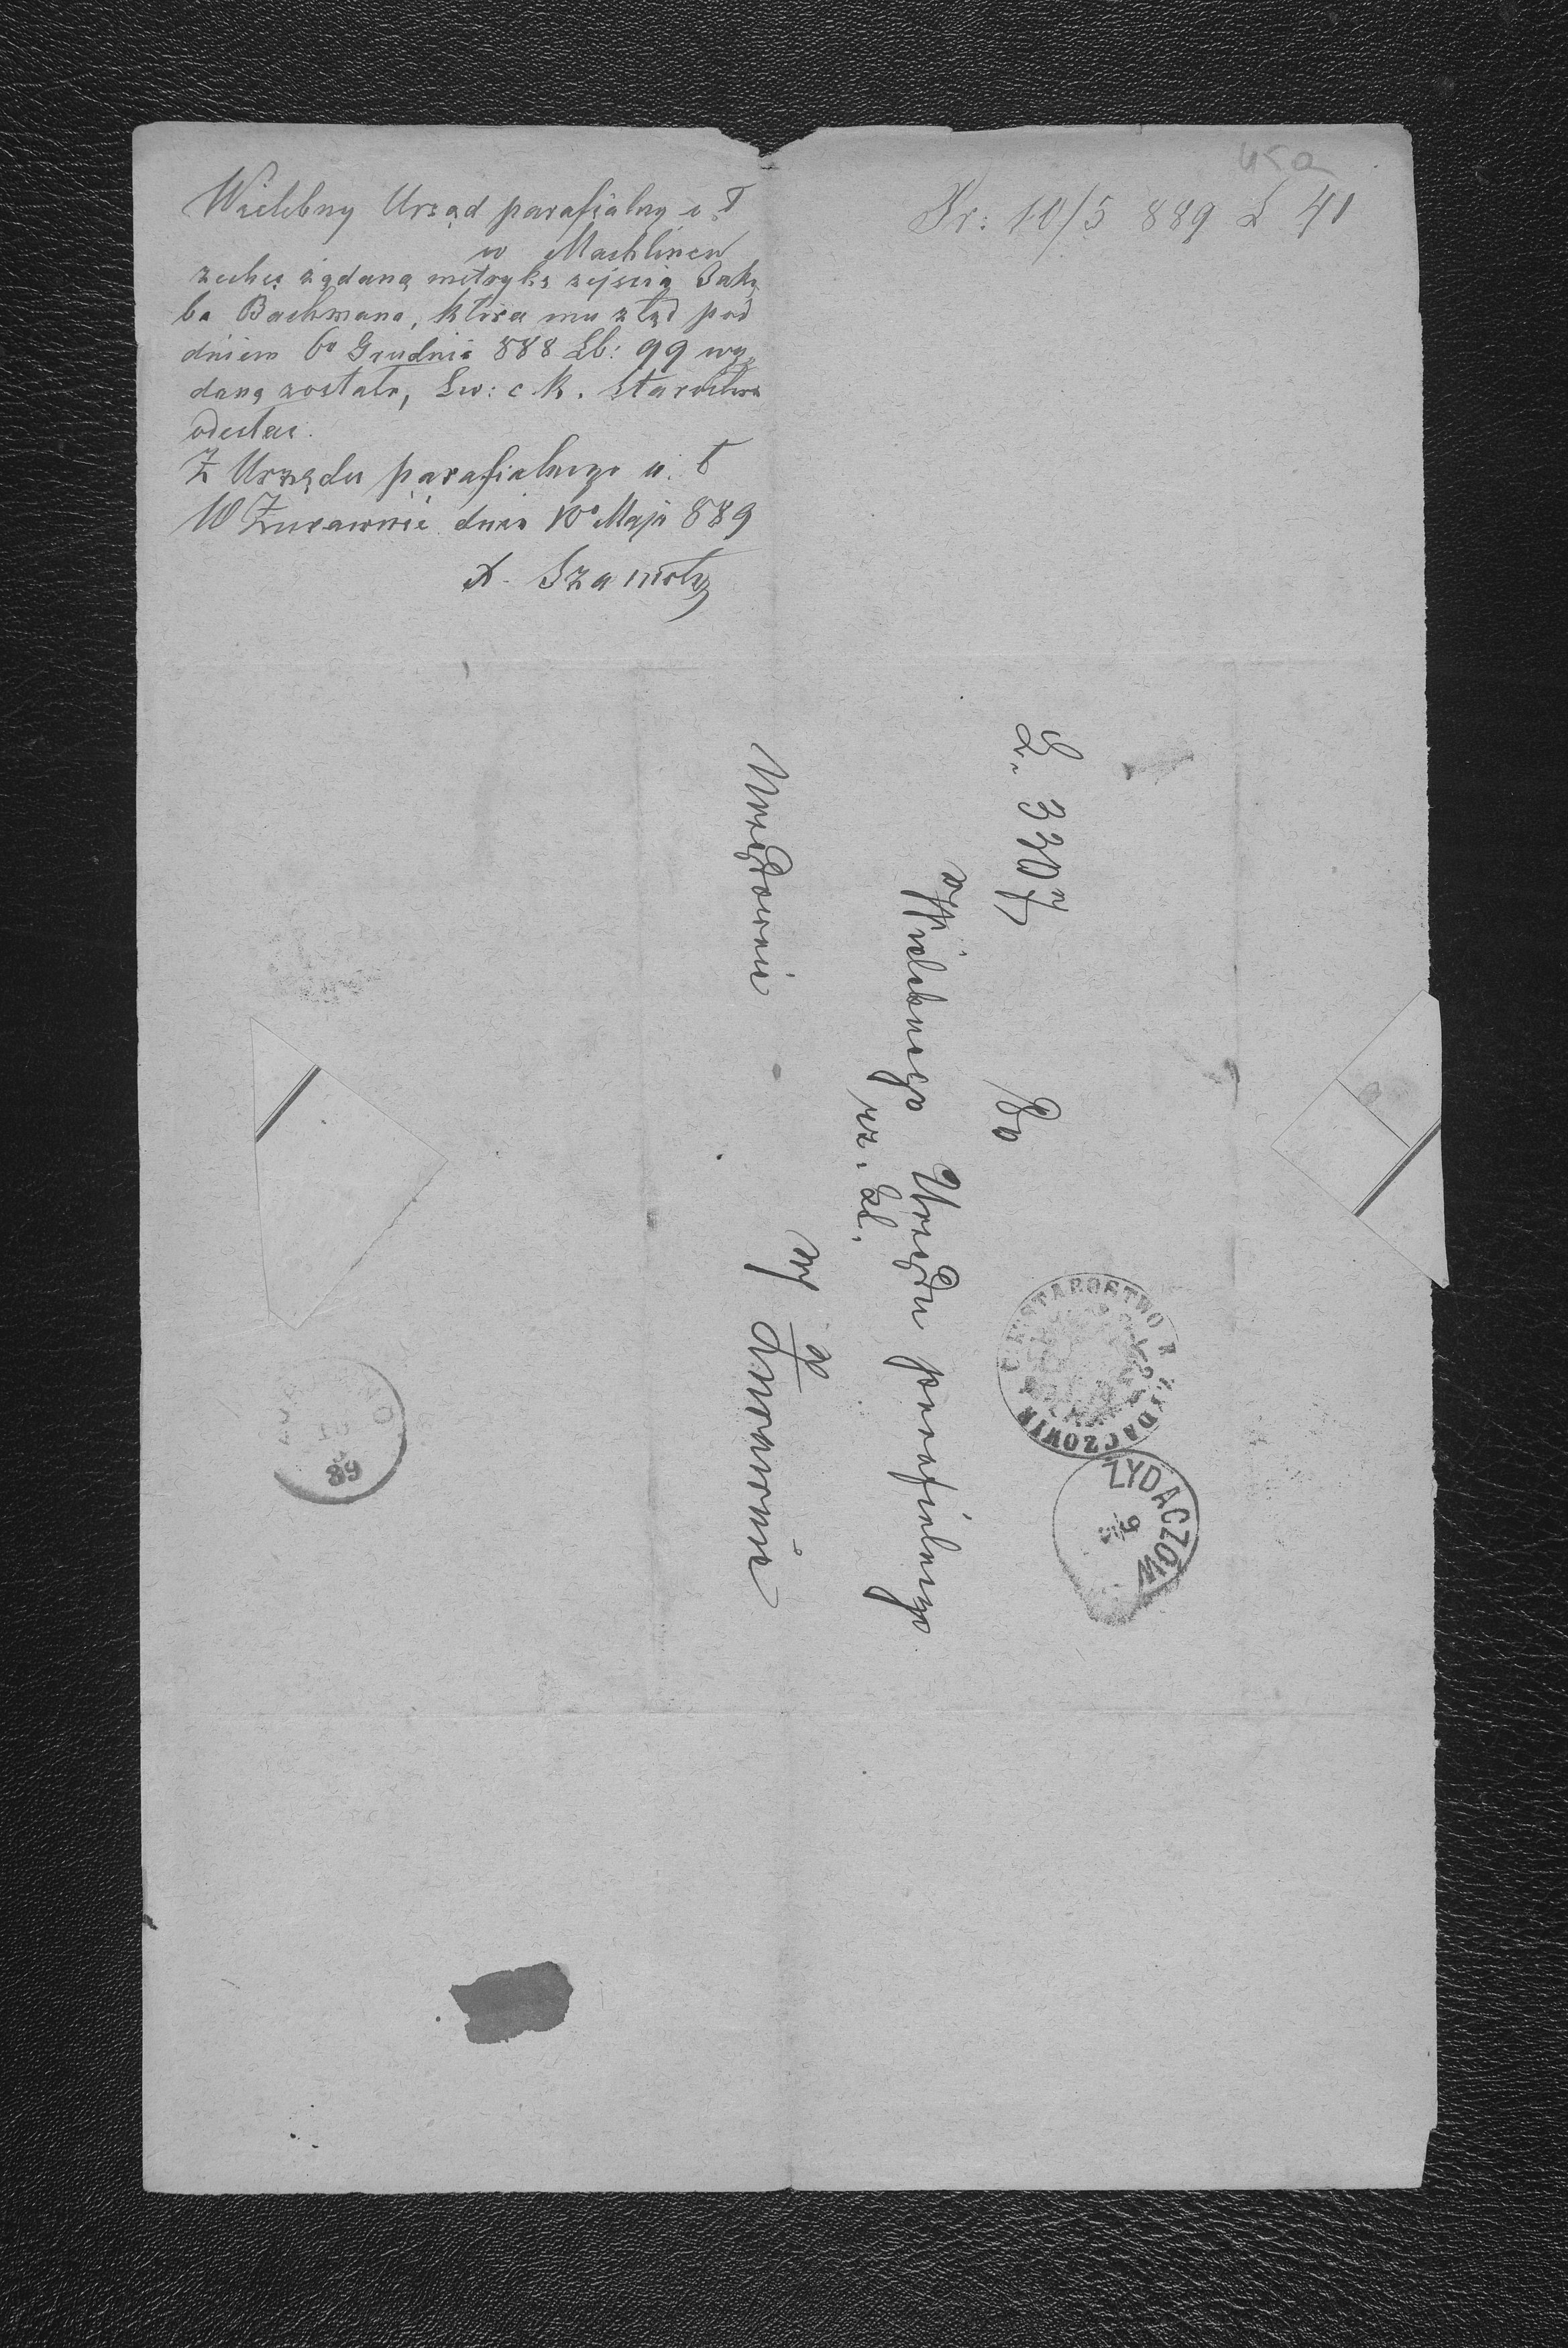 45a
Pr: 10/5 889 L 41
Wielebny Urząd parafialny o. ł
w Machlincu
zechce żądaną metrykę zejścia Jakó
ba Bachmana, która mu ztąd pod
dniem 6o Grudnia 888 Lb: 99 wy
daną została, Św: c. k. Starostwu
odesłać.
Z Urzędu parafialnego o. ł
W Żurawnie dnia 10o Maja 889
X. Szamoty
L. 3207
Do
Wielebnego Urzędu parafialnego
rz. kł.
Urzędownie
w
Żurawnie
C. K. STAROSTWO W ŻYDACZOWIE
ŻYDACZÓW
9/5
10
5
89